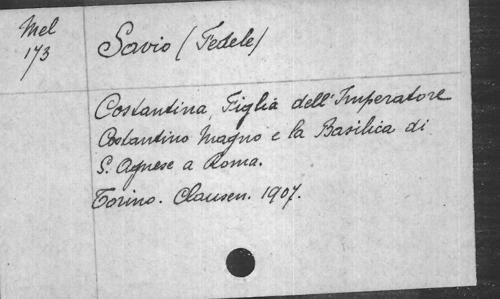 Mel
173
Savio (Fedele)
Costantina, Figlia dell'Imperatore
Costantino Magno e la Basilica di
S. Agnese a Roma.
Torino. Clausen. 1907.